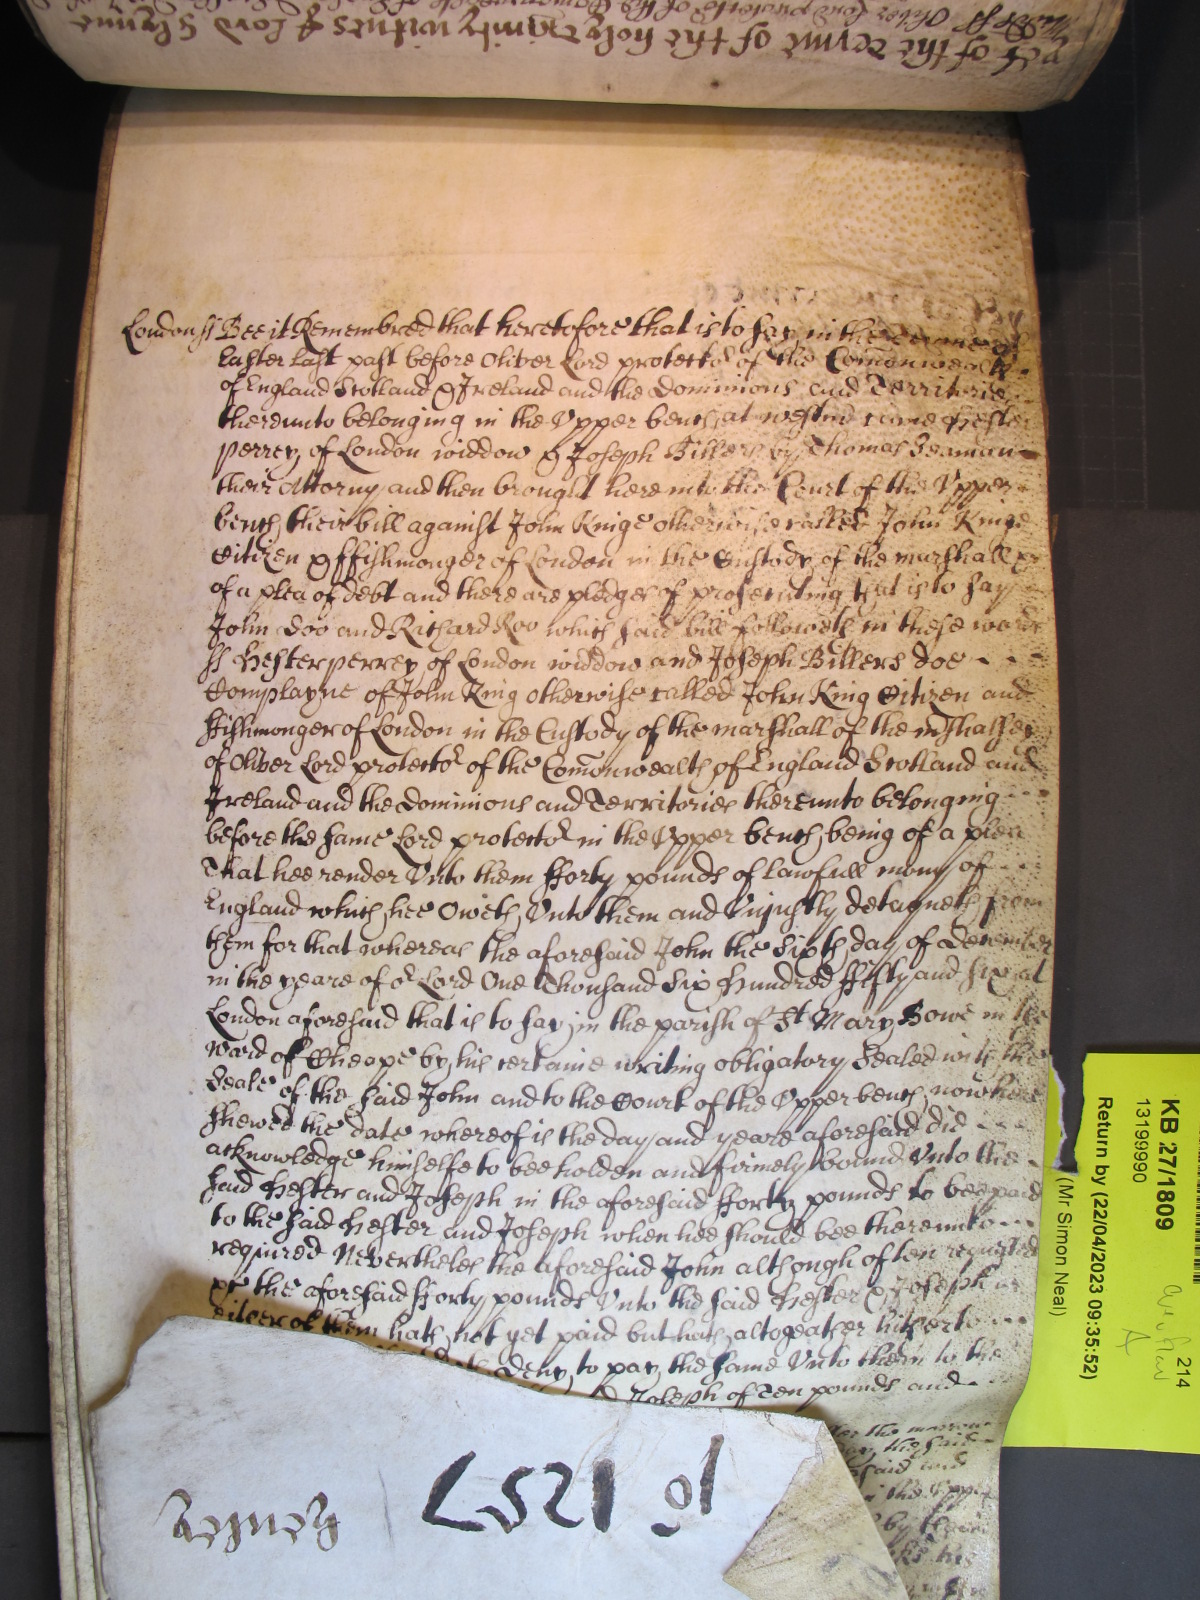 yes of the terme of the holy Trinity witnes J lord Glynne
London ss Bee it Remembred that heretofore that is to say in the terme of
Easter last past before Oliver Lord protector of the Comonwealth
of England Scotland & Ireland and the Dominions and Territories
thereunto belonging in the Upper bench at westmr came Hester
perrey of London widdow & Joseph Billers by Thomas Seaman
their Attorny and then brought here into the Court of the Upper
bench their bill against John Kinge otherwise called John Kinge
Citizen & ffishmonger of London in the Custody of the marshall &c
of a plea of debt and there are pledges of prosecuting that is to say
John Doo and Richard Roo which said bill followeth in these words
ss Hester perrey of London widdow and Joseph Billers doe
Complayne of John King otherwise called John King Citizen and
ffishmonger of London in the Custody of the marshall of the mshalsey
of Oliver Lord protector of the Comonwealth of England Scotland and
Ireland and the Dominions and Territories thereunto belonging
before the same Lord protector in the Upper bench being of a plea
That hee render Unto them fforty pounds of lawfull mony of
England which hee Oweth Unto them and Unjustly detayneth from
them for that whereas the aforesaid John the Sixth day of December
in the yeare of or Lord One Thousand Six Hundred ffifty and six at
London aforesaid that is to say in the parish of St Mary Bowe in the
ward of Cheape by his certaine writing obligatory Sealed with the
Seale of the said John and to the Court of the Upper bench now here
shewed the date whereof is the day and yeare aforesaid did
acknowledge himselfe to bee holden and firmely bound Unto the
said Hester and Joseph in the aforesaid fforty pounds to bee paid
to the said Hester and Joseph when hee should bee thereunto
required Nevertheles the aforesaid John although often requested
&c the aforesaid fforty pounds Unto the said Hester & Joseph or
either of them hath not yet paid but hath altogeather hitherto
deny to pay the same Unto them to the
Joseph of Ten pounds and
the morrow
the said
said and
the Upper
by their
KB 27/1809
13199990
Return by (22/04/2023 09:35:52)
(Mr Simon Neal)
214
A
1657